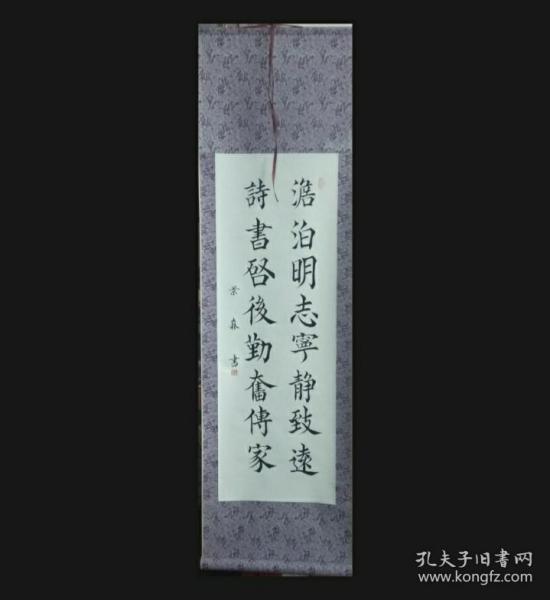 澹泊明志寧静致遠
詩書啓後勤奮傳家
業森書
孔夫子旧書网
www.kongfz.com